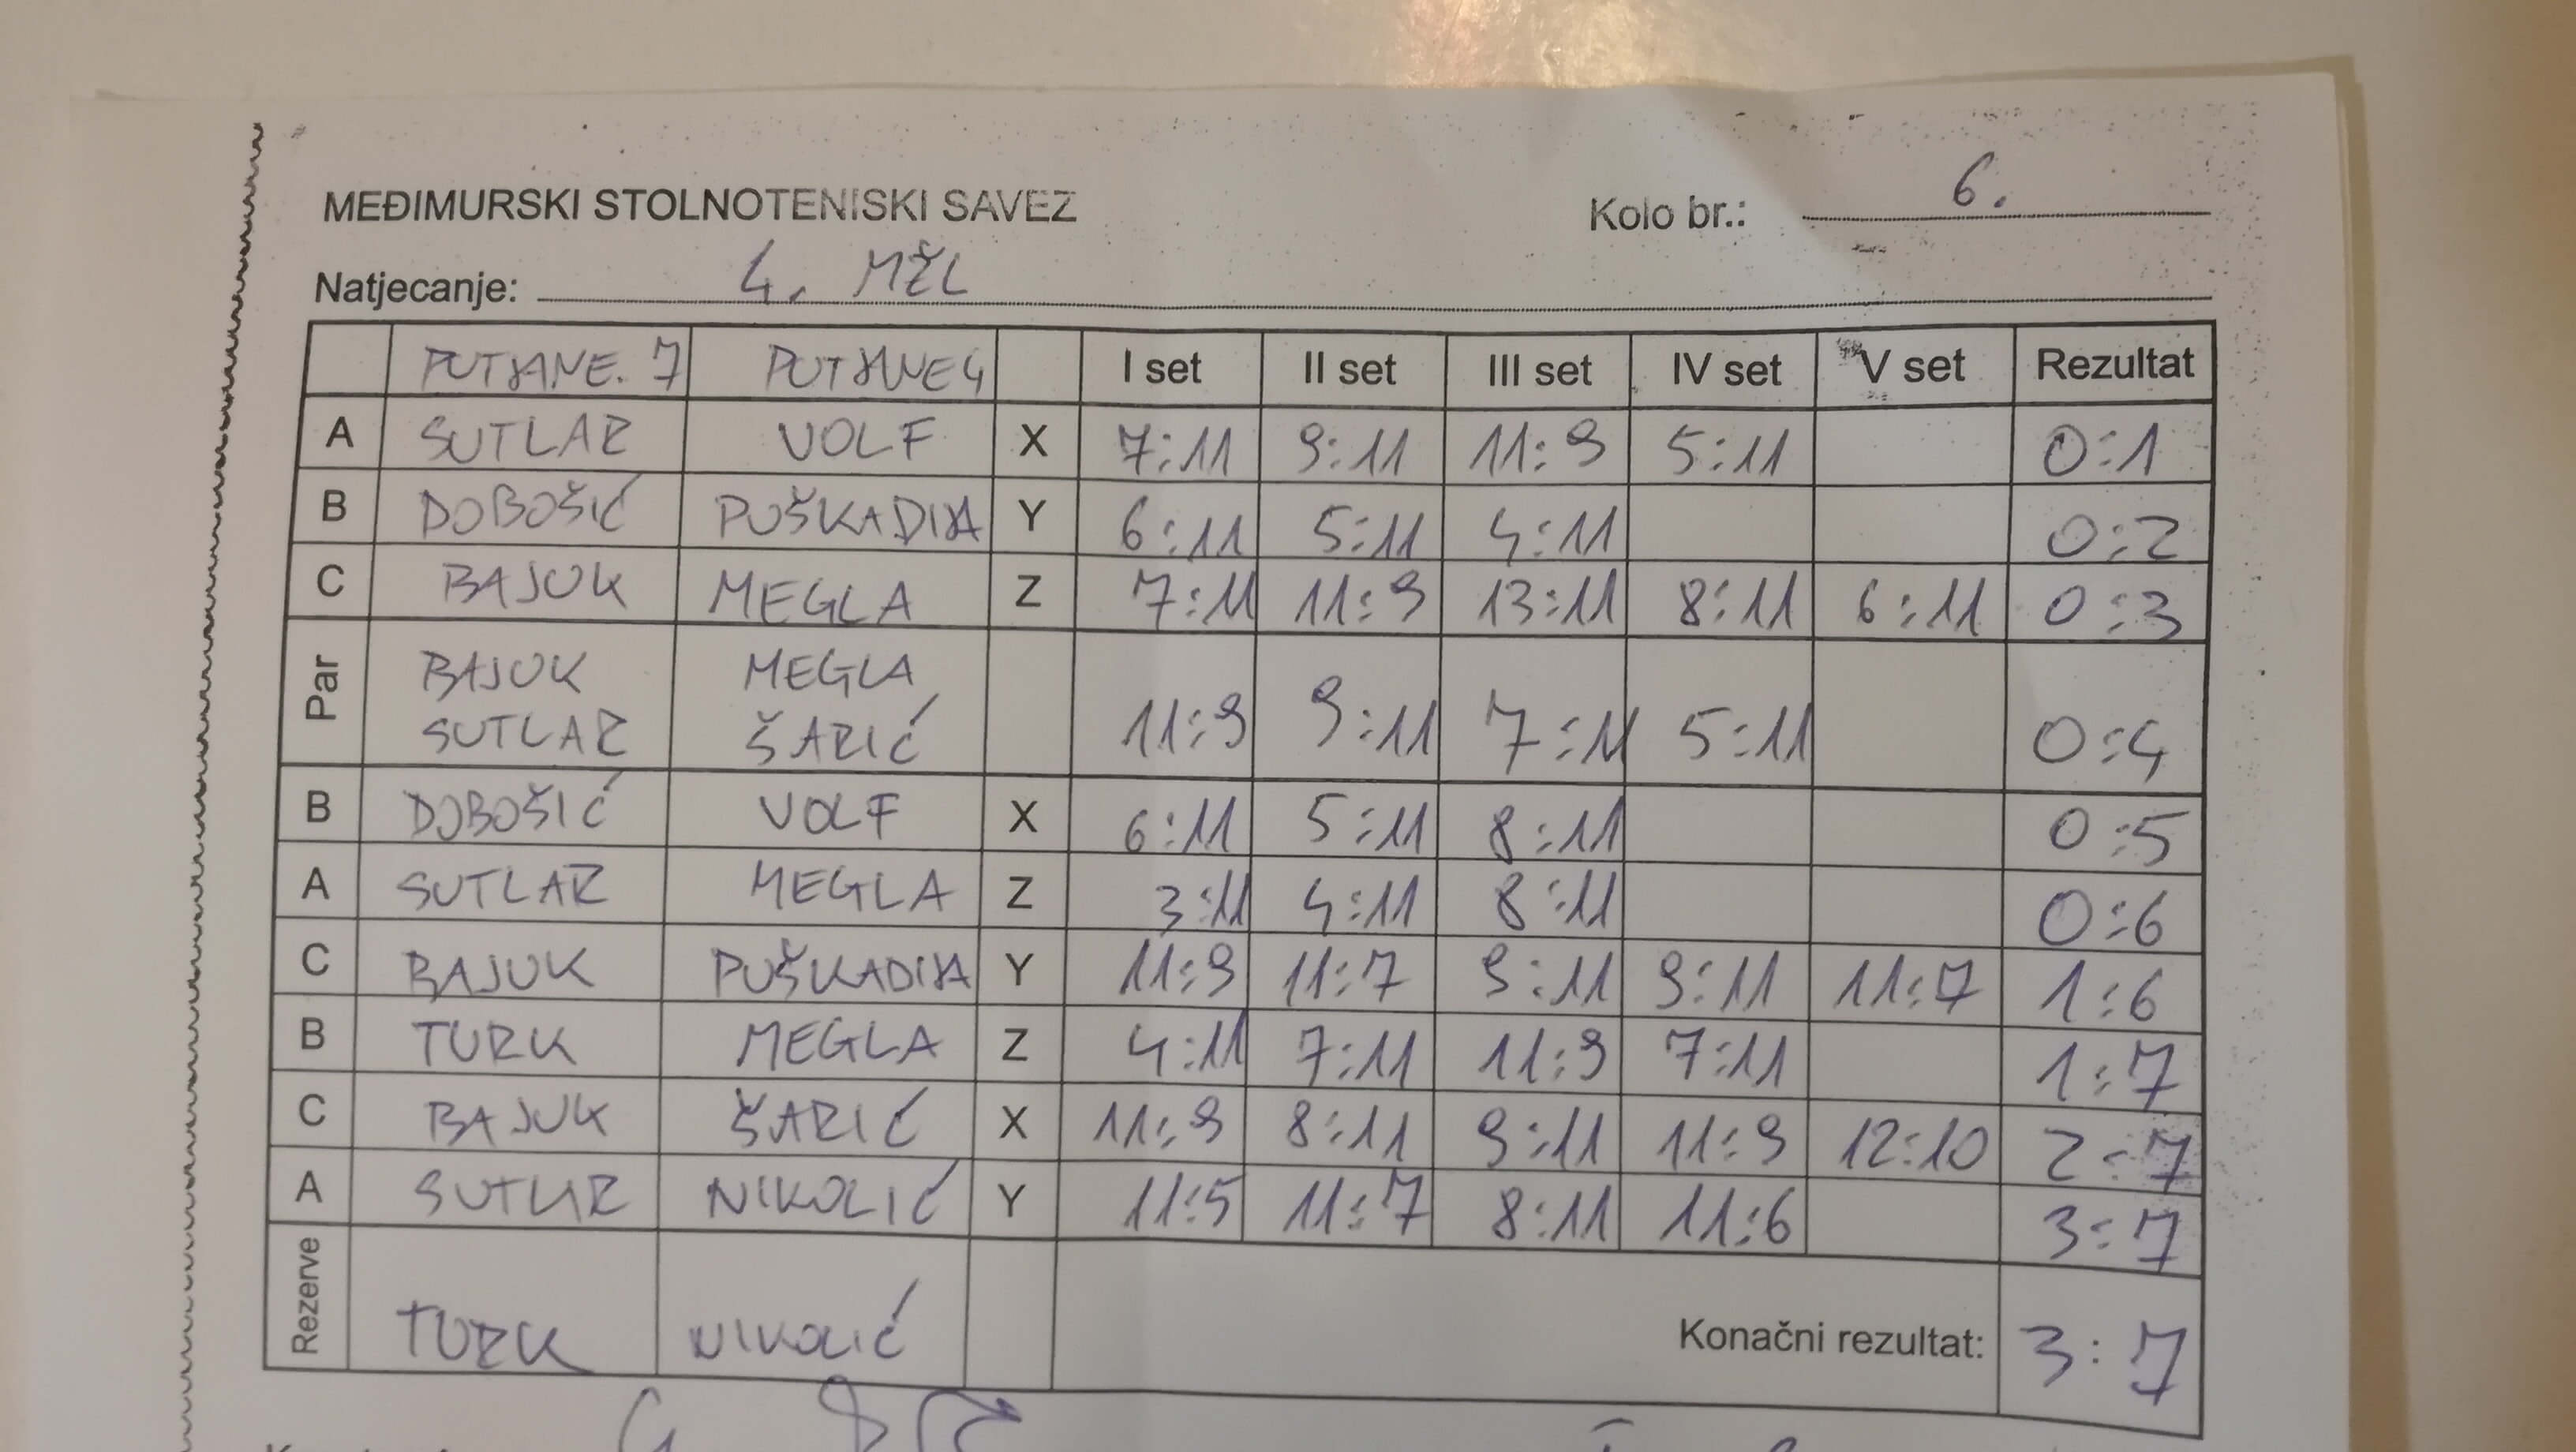 MEĐIMURSKI STOLNOTENISKI SAVEZ
Kolo br.: 6.
Natjecanje: 4. MŽL
PUTJANE. 7 PUTJANE 4 I set II set III set IV set V set Rezultat
A SUTLAR VOLF X 7:11 9:11 11:9 5:11 0:1
B DOBOŠIĆ PUŠKADIJA Y 6:11 5:11 4:11 0:2
C BAJUK MEGLA Z 7:11 11:9 13:11 8:11 6:11 0:3
Par BAJUK MEGLA
SUTLAR ŠARIĆ 11:9 9:11 7:11 5:11 0:4
B DOBOŠIĆ VOLF X 6:11 5:11 8:11 0:5
A SUTLAR MEGLA Z 3:11 4:11 8:11 0:6
C BAJUK PUŠKADIJA Y 11:9 11:7 9:11 9:11 11:7 1:6
B TURK MEGLA Z 4:11 7:11 11:9 7:11 1:7
C BAJUK ŠARIĆ X 11:9 8:11 9:11 11:9 12:10 2:7
A SUTLAR NIKOLIĆ Y 11:5 11:7 8:11 11:6 3:7
Rezerve TURK NIKOLIĆ Konačni rezultat: 3:7